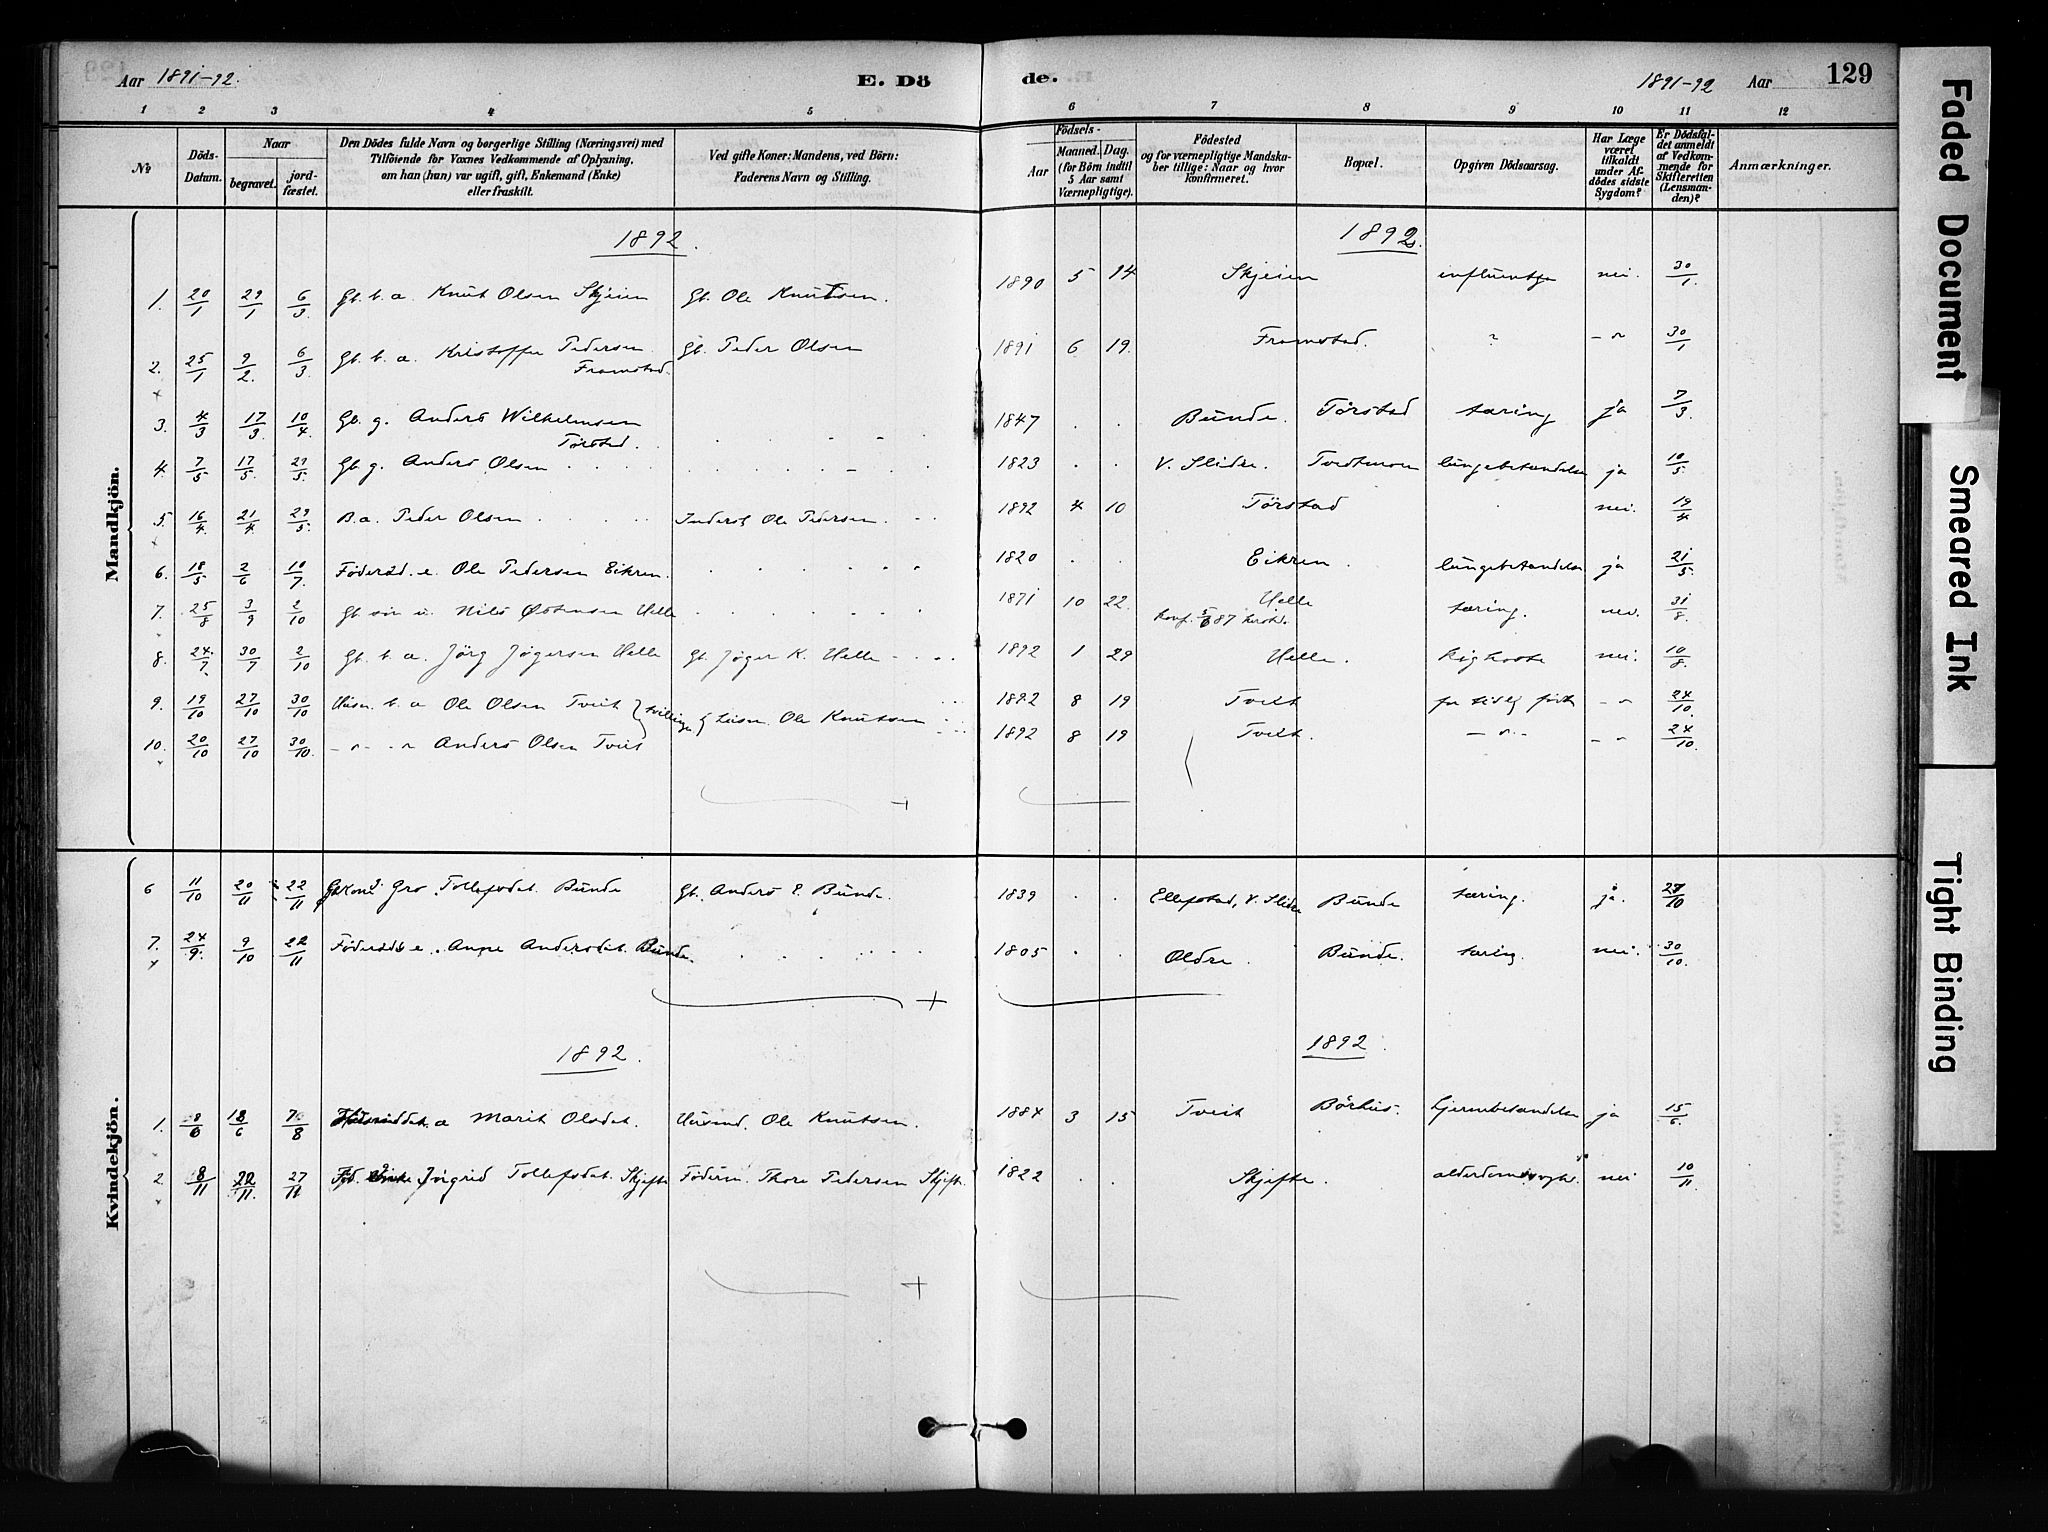 Aar 1891-92. E. Dö de. 1891-92 Aar 129
1 2 3 4 5 6 7 8 9 10 11 12
No
Döds-Datum.
Naar
begravet.
jord-fæstet.
Den Dödes fulde Navn og borgerlige Stilling (Næringsvei) med
Tilföiende for Voxnes Vedkommende af Oplysning,
om han (hun) var ugift, gift, Enkemand (Enke)
eller fraskilt.
Ved gifte Koner: Mandens, ved Börn:
Faderens Navn og Stilling.
Födsels-
Aar
Maaned. Dag.
(for Börn indtil
5 Aar samt
Værnepligtige).
Födested
og for værnepligtige Mandska-
ber tillige: Naar og hvor
konfirmeret.
Bopæl.
Opgiven Dödsaarsag.
Har Læge
været
tilkaldt
under Af-
dödes sidste
Sygdom?
Er Dödsfal-
det anmeldt
af Vedkom-
mende for
Skifteretten
(Lensman-
den)?
Anmærkninger.
Mandkjön.
1892. 1892.
1. 20/1 29/1 6/3 Gb. b. a. Knut Olsen Skjeien Gb. Ole Knutsen. 1890 5 14 Skjeien influentza nei. 30/1
2. 25/1 9/2. 6/3 Gb. b. a. Kristoffer Pedersen Gb. Peder Olsen 1891 6 19. Framstad. 30/1
Framstad.
3. 4/3 17/3 10/4. Gb. g. Anders Wilhelmsen 1847 Bunde. Törstad tæring ja 7/3.
Törstad.
4. 7/5 17/5. 29/5. Gb. g. Anders Olsen 1823 V. Slidre. lungebetændelse ja 10/5.
5. 16/4. 21/4. 29/5. B. a. Peder Olsen Inderst Ole Pedersen. 1892 4 10 Törstad nei. 19/4
6. 18/5 2/6 10/7. Föderåd. e. Ole Pedersen Eikren. 1820 Eikren lungebetændelse ja 21/5.
7. 25/8 3/9 2/10 Gb. sön u. Nils Östensen Helle 1871 10 22. Helle tæring. nei. 31/8.
Konf. 87
8. 24/7 30/7 2/10 Gb. b. a. Jörg Jögersen Helle Gb. Jöger K. Helle 1892 1 29 Helle. Kighoste nei. 10/8.
9. 19/10 27/10 30/10 Husm. b. a Ole Olsen Tveit } tvillinger { husm. Ole Knutsen 1892 8 19 Tveit for tidlig födt 24/10.
10. 20/10 27/10 30/10. Anders Olsen Tveit 1892 8 19 Tveit. 24/10.
Kvindekjön.
6 11/10 20/11 22/11 Gbkone Gro Tollefsdat. Bunde Gb. Anders E. Bunde. 1839 Ellefstad, V. Slidre Bunde tæring. ja. 27/10
7. 24/9. 9/10 22/11 Föderåds e. Anne Andersdat. Bunde. 1805 Oldre. Bunde. tæring. nei. 30/10.
1892. 1892.
1. 8/6 18/6 7/8 a Marit Olsdat. Husmd. Ole Knutsen. 1884 3 15 Tveit Börhus. hjernebetændelse ja 15/6.
2. 8/11 22/11. 27/11 Föd. enke Jngrid Tollefsdat. Skjefte Föderm. Thore Pedersen Skjefte. 1822 Skjefte. alderdomssvagh. nei 10/11
Faded Document
Smeared Ink
Tight Binding